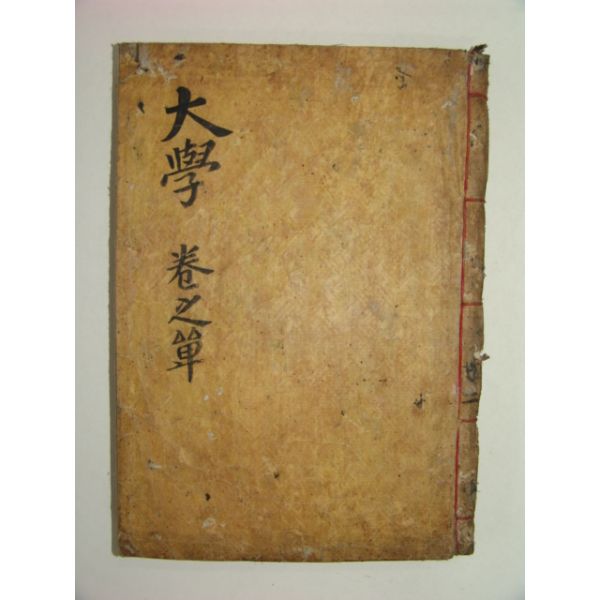 大學
卷之單
二